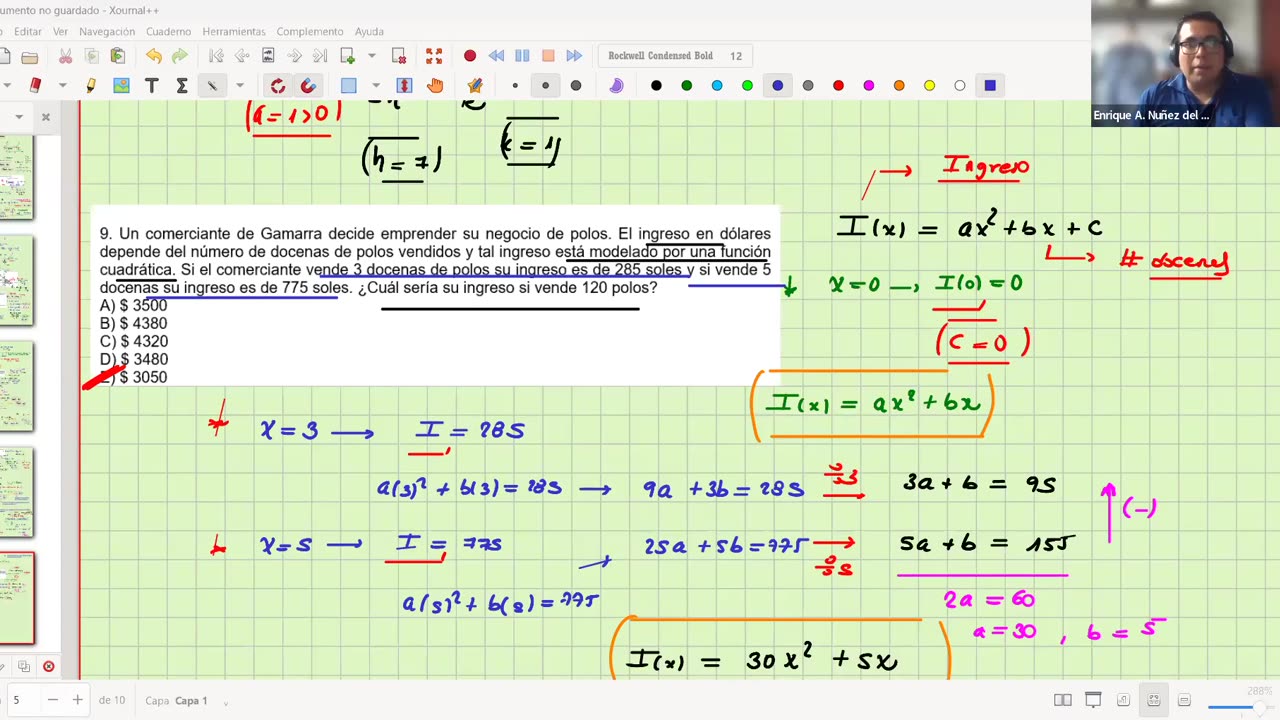 umento no guardado - Xournal++
Editar Ver Navegación Cuaderno Herramientas Complemento Ayuda
Rockwell Condensed Bold 12
Enrique A. Nuñez del ...
(a = 1 > 0)
(h = 7)
(k = 1)
9. Un comerciante de Gamarra decide emprender su negocio de polos. El ingreso en dólares
depende del número de docenas de polos vendidos y tal ingreso está modelado por una función
cuadrática. Si el comerciante vende 3 docenas de polos su ingreso es de 285 soles y si vende 5
docenas su ingreso es de 775 soles. ¿Cuál sería su ingreso si vende 120 polos?
A) $ 3500
B) $ 4380
C) $ 4320
D) $ 3480
E) $ 3050
→ Ingreso
I(x) = ax² + bx + c
→ # docenas
x=0 → I(0) = 0
(c = 0)
I(x) = ax² + bx
x = 3 → I = 285
a(3)² + b(3) = 285 → 9a + 3b = 285 ÷3 → 3a + b = 95
(-)
x = 5 → I = 775
25a + 5b = 775 ÷5 → 5a + b = 155
a(5)² + b(5) = 775
2a = 60
a = 30 , b = 5
I(x) = 30x² + 5x
5 de 10 Capa Capa 1
288%